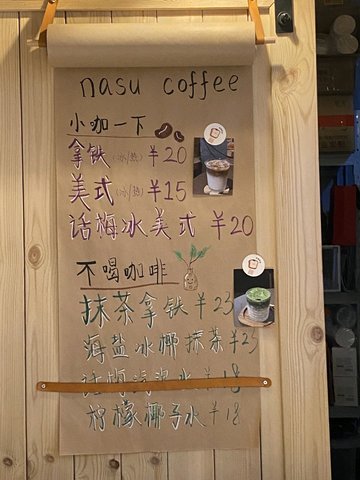 nasu coffee
小咖一下
拿铁(冰/热) ¥20
美式(冰/热) ¥15
话梅冰美式 ¥20
不喝咖啡
抹茶拿铁 ¥23
海盐冰椰抹茶 ¥23
话梅气泡水 ¥18
柠檬椰子水 ¥18